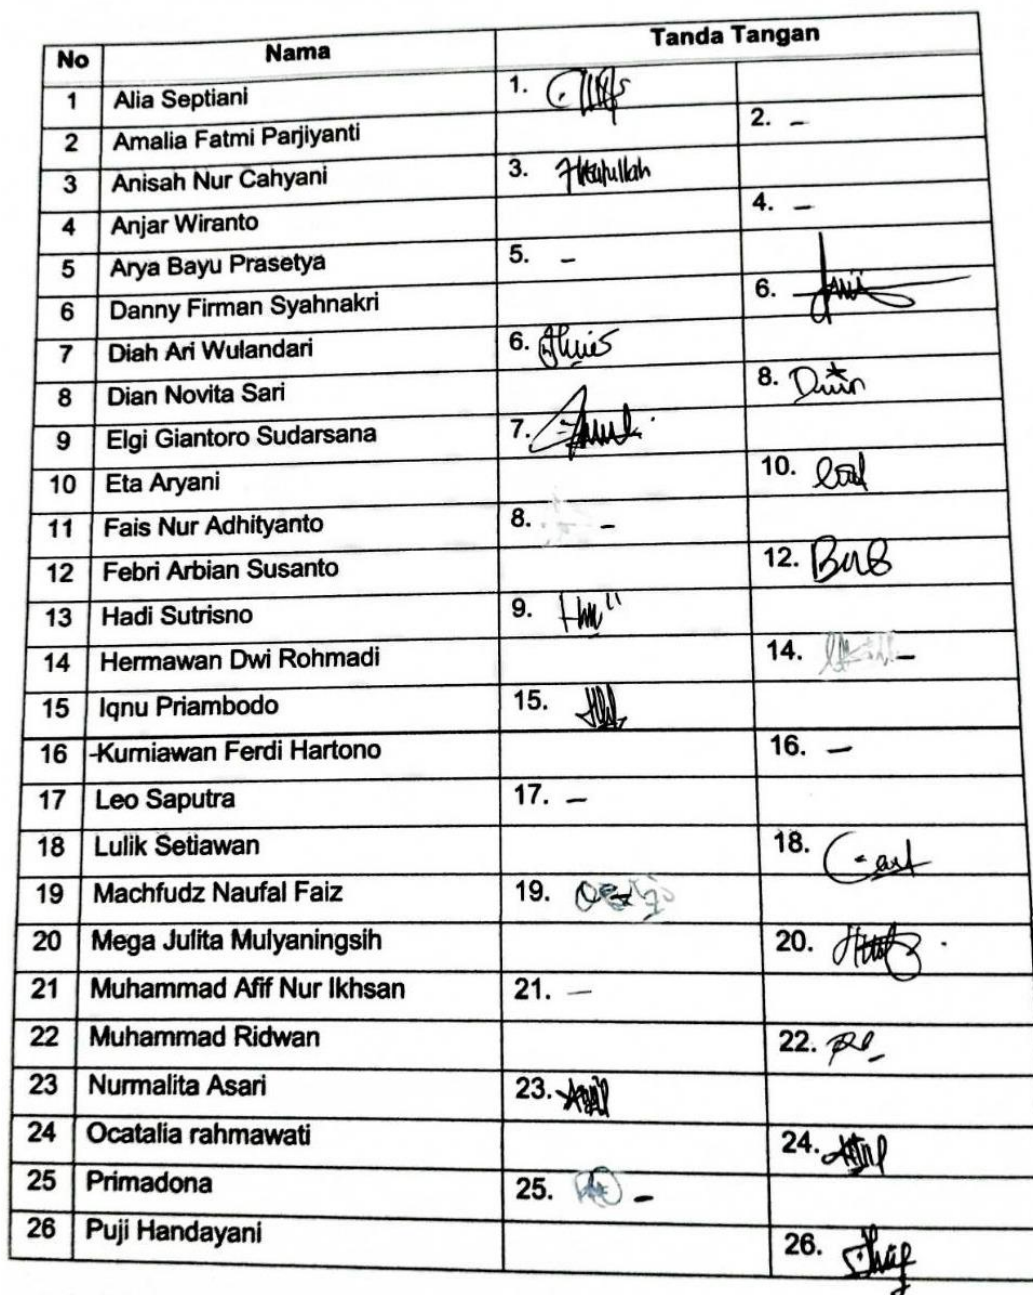 No Nama Tanda Tangan
1 Alia Septiani 1.
2 Amalia Fatmi Parjiyanti 2. -
3 Anisah Nur Cahyani 3.
4 Anjar Wiranto 4. -
5 Arya Bayu Prasetya 5. -
6 Danny Firman Syahnakri 6.
7 Diah Ari Wulandari 6.
8 Dian Novita Sari 8.
9 Elgi Giantoro Sudarsana 7.
10 Eta Aryani 10.
11 Fais Nur Adhityanto 8. -
12 Febri Arbian Susanto 12.
13 Hadi Sutrisno 9.
14 Hermawan Dwi Rohmadi 14. -
15 Iqnu Priambodo 15.
16 -Kurniawan Ferdi Hartono 16. -
17 Leo Saputra 17. -
18 Lulik Setiawan 18.
19 Machfudz Naufal Faiz 19.
20 Mega Julita Mulyaningsih 20.
21 Muhammad Afif Nur Ikhsan 21. -
22 Muhammad Ridwan 22.
23 Nurmalita Asari 23.
24 Ocatalia rahmawati 24.
25 Primadona 25. -
26 Puji Handayani 26.